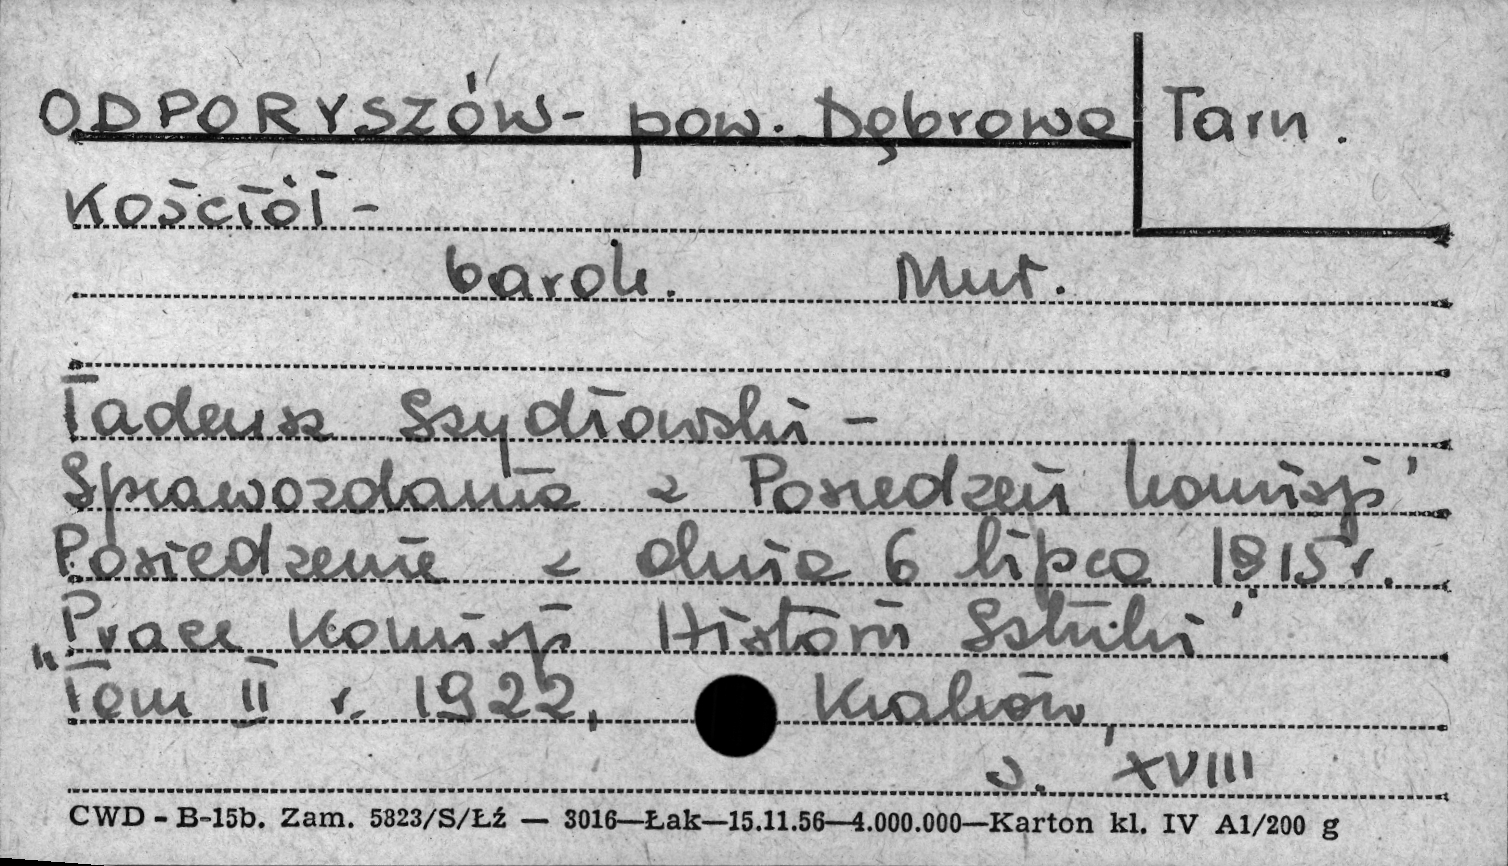 ODPORYSZÓW - pow. Dąbrowa Tarn.
Kościół -
barok. Mur.
Tadeusz Szydłowski -
Sprawozdania z Posiedzeń Komisji"
Posiedzenie z dnia 6 lipca 1915 r.
"Prace Komisji Historii Sztuki"
Tom II r. 1922, Kraków,
s. XVIII
CWD - B-15b. Zam. 5823/S/Łź — 3016—Łak—15.11.56—4.000.000—Karton kl. IV A1/200 g